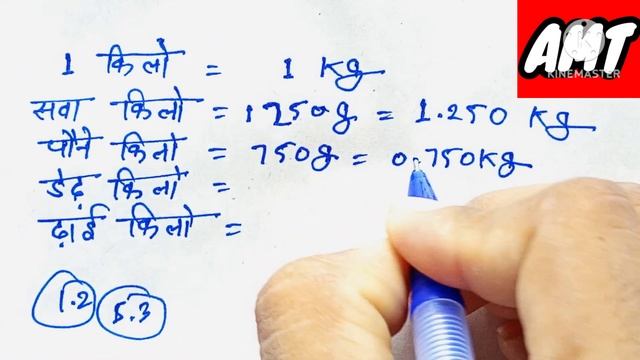 AMT
KINEMASTER
1 किलो = 1 Kg
सवा किलो = 1250g = 1.250 Kg
पौने किलो = 750g = 0.750Kg
डेढ़ किलो =
ढ़ाई किलो =
1.2 5.3